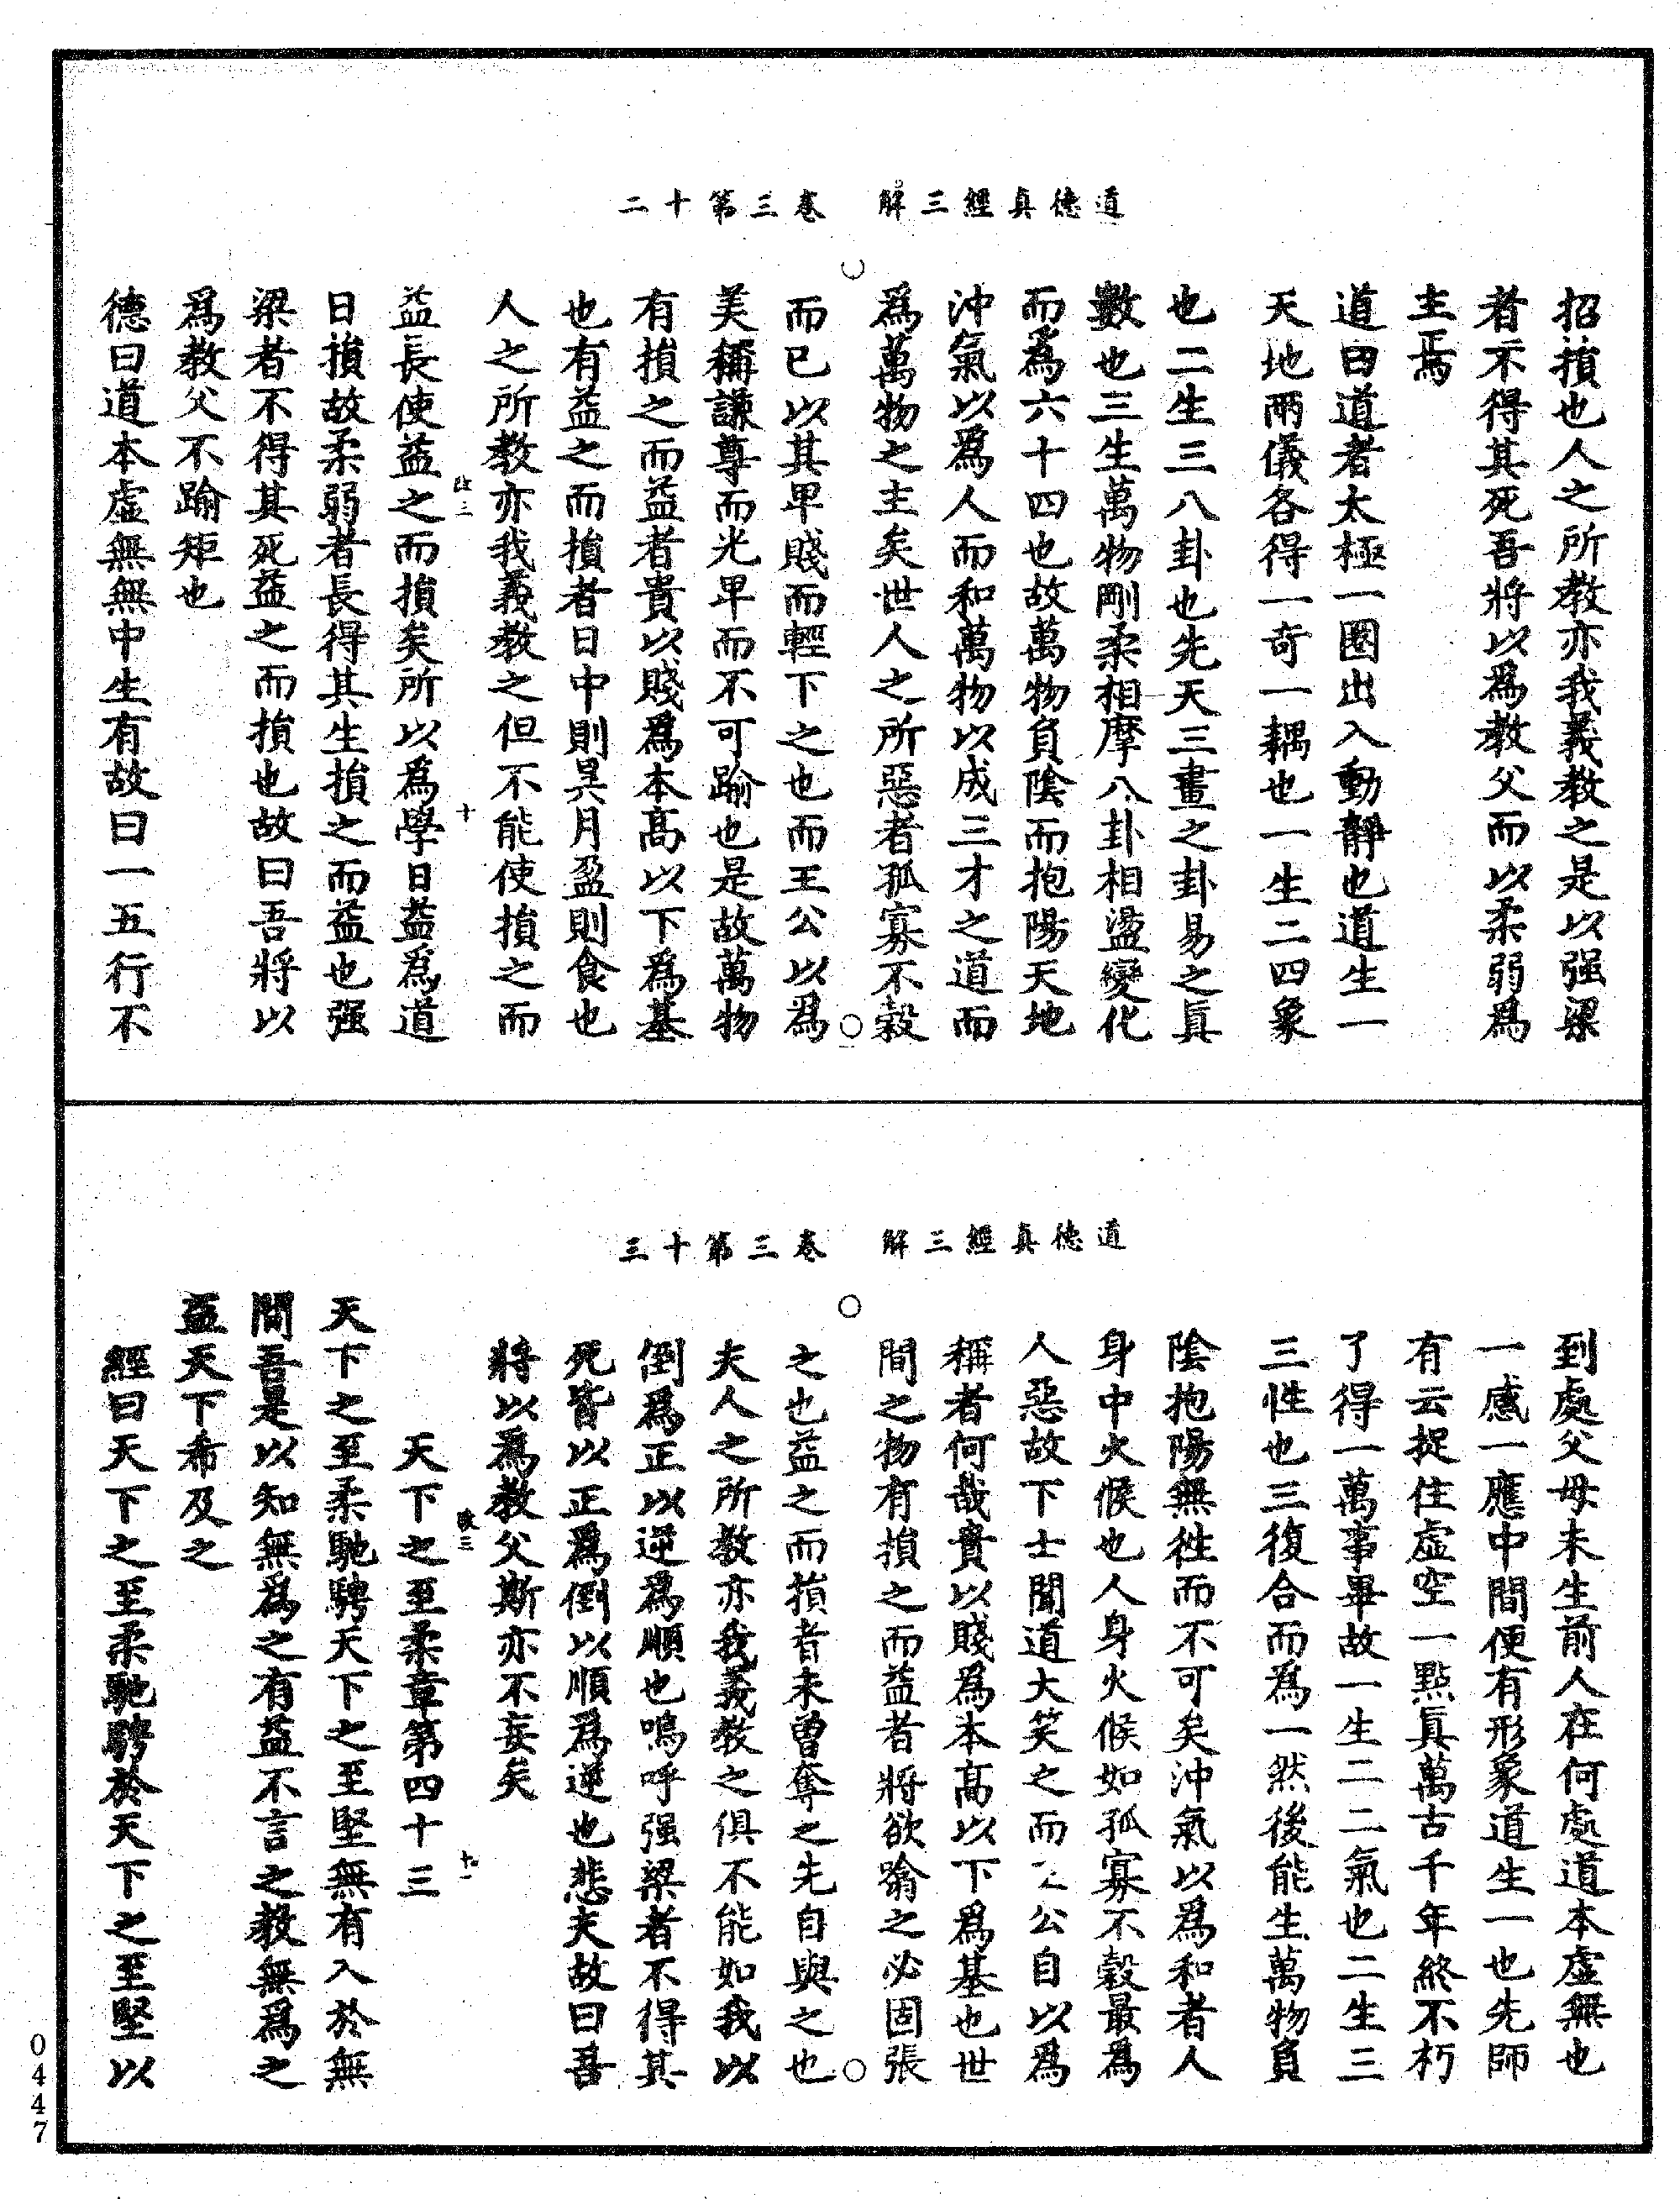 道德真經三解　卷三第十二
招損也人之所教亦我義教之是以强梁
者不得其死吾將以爲教父而以柔弱爲
主焉
道曰道者太極一圈出入動靜也道生一
天地兩儀各得一奇一耦也一生二四象
也二生三八卦也先天三畫之卦易之眞
數也三生萬物剛柔相摩八卦相盪變化
而爲六十四也故萬物負陰而抱陽天地
沖氣以爲人而和萬物以成三才之道而
爲萬物之主矣世人之所惡者孤寡不穀
而已以其卑賤而輕下之也而王公以爲
美稱謙尊而光卑而不可踰也是故萬物
有損之而益者貴以賤爲本高以下爲基
也有益之而損者日中則昃月盈則食也
人之所教亦我義教之但不能使損之而
益長使益之而損矣所以爲學日益爲道
日損故柔弱者長得其生損之而益也强
梁者不得其死益之而損也故曰吾將以
爲教父不踰矩也
德曰道本虛無無中生有故曰一五行不
道德真經三解　卷三第十三
到處父母未生前人在何處道本虛無也
一感一應中間便有形象道生一也先師
有云捉住虛空一點眞萬古千年終不朽
了得一萬事畢故一生二二氣也二生三
三性也三復合而爲一然後能生萬物負
陰抱陽無徃而不可矣沖氣以爲和者人
身中火候也人身火候如孤寡不穀最爲
人惡故下士聞道大笑之而公自以爲
稱者何哉貴以賤爲本高以下爲基也世
間之物有損之而益者將欲翕之必固張
之也益之而損者未曾奪之先自與之也
夫人之所教亦我義教之俱不能如我以
倒爲正以逆爲順也嗚呼强梁者不得其
死皆以正爲倒以順爲逆也悲夫故曰吾
將以爲教父斯亦不妄矣
天下之至柔章第四十三
天下之至柔馳騁天下之至堅無有入於無
間吾是以知無爲之有益不言之教無爲之
益天下希及之
經曰天下之至柔馳騁於天下之至堅以
0447